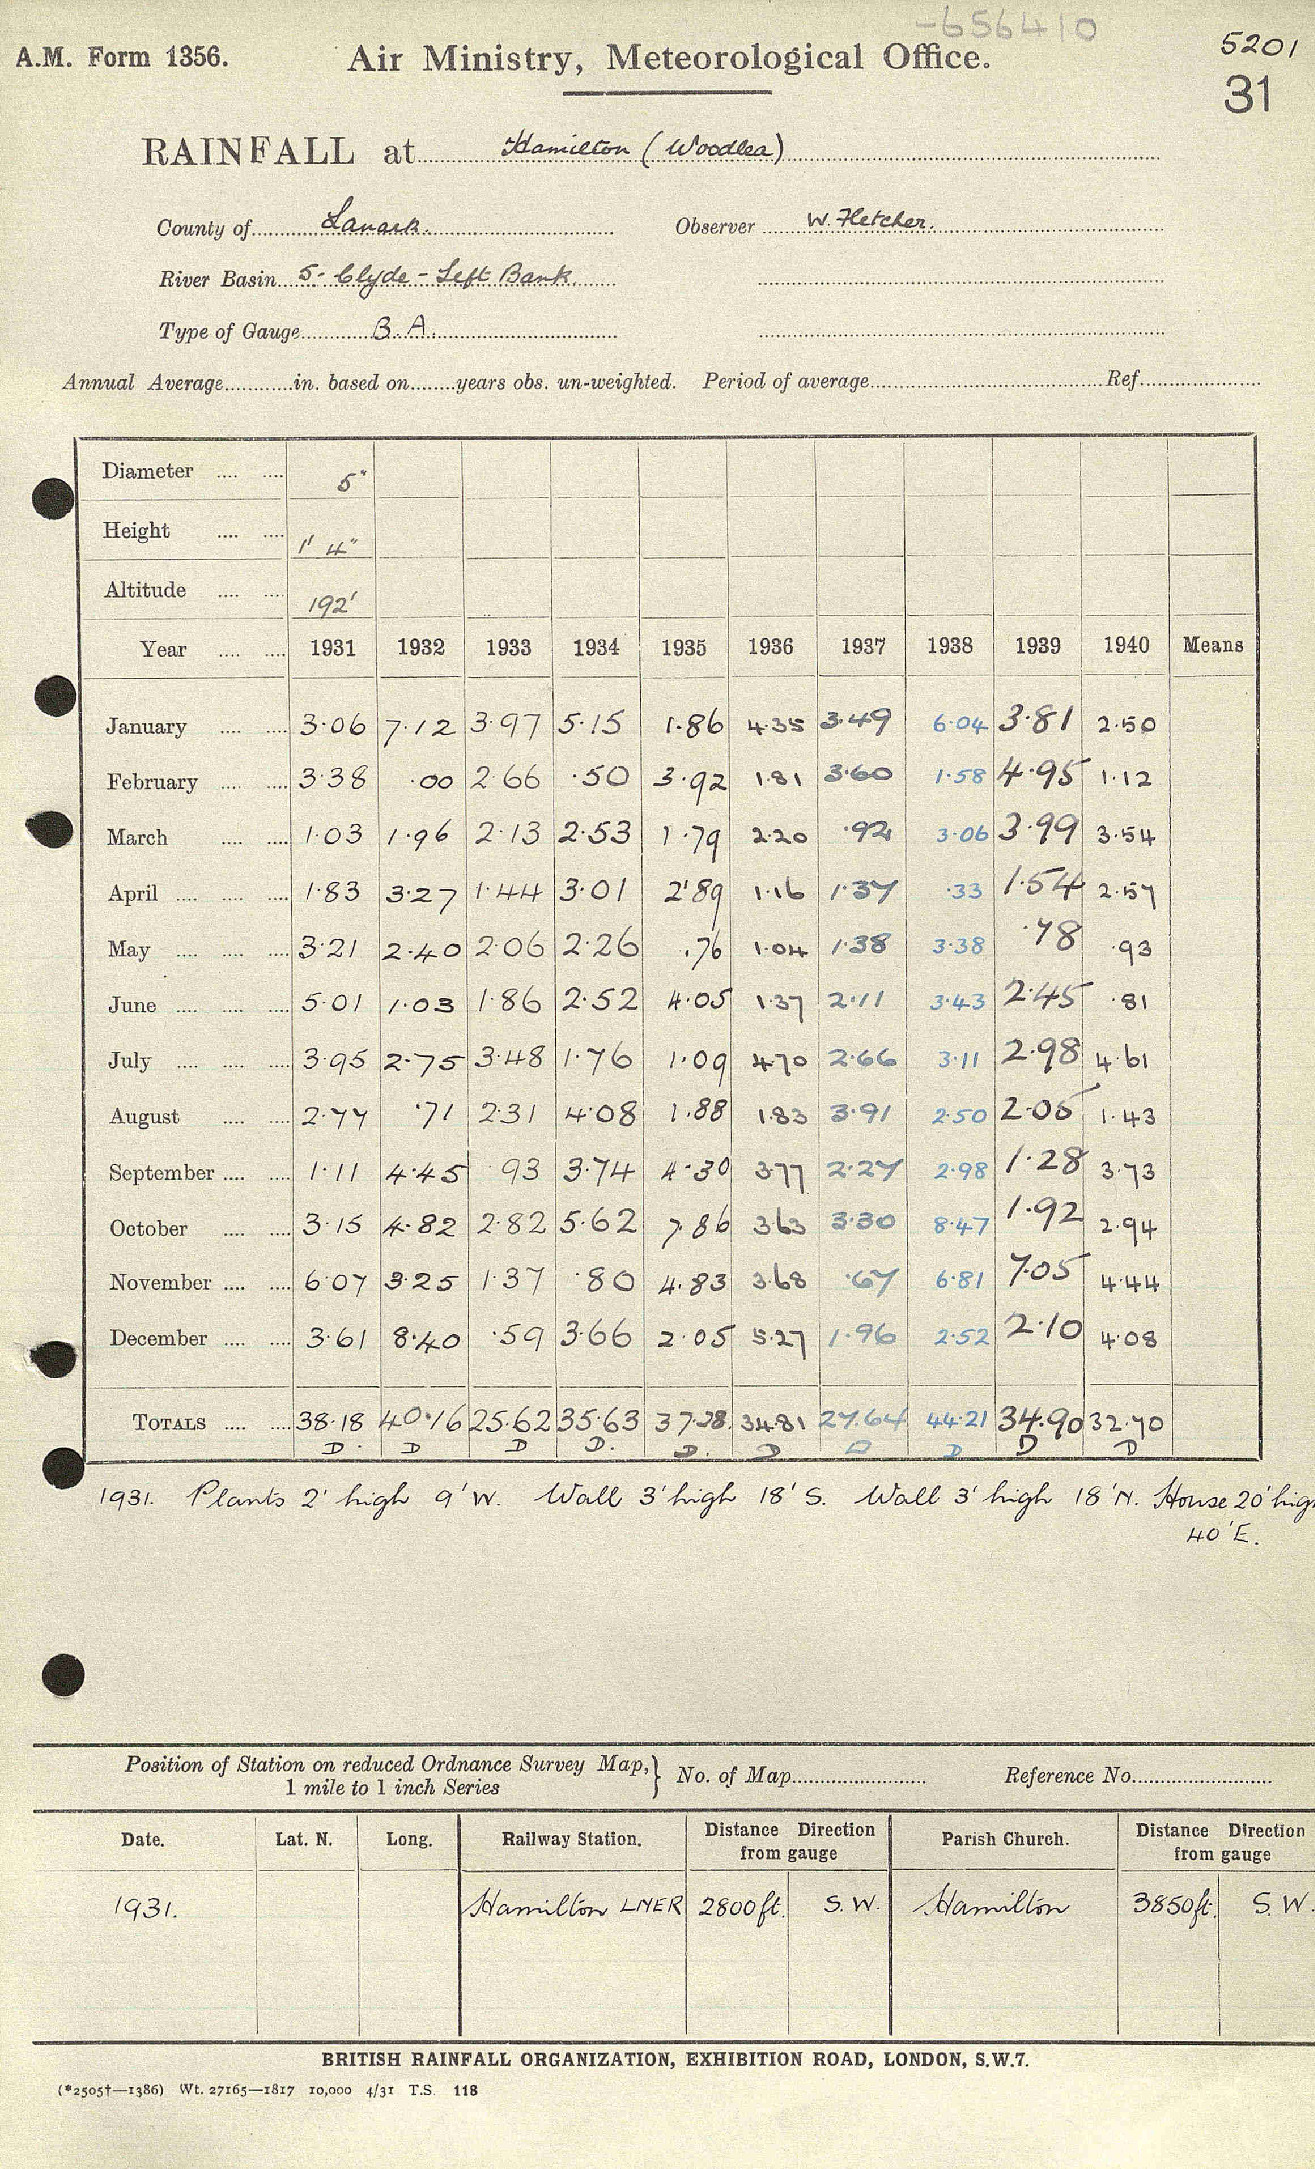 -656410
A.M. Form 1356. Air Ministry, Meteorological Office. 5201
31
RAINFALL at Hamilton (Woodlea)
County of Lanark. Observer W. Fletcher.
River Basin 5- Clyde - Left Bank.
Type of Gauge B.A.
Annual Average in. based on years obs. un-weighted. Period of average Ref.
Diameter 5"
Height 1' 4"
Altitude 192'
Year 1931 1932 1933 1934 1935 1936 1937 1938 1939 1940 Means
January 3.06 7.12 3.97 5.15 1.86 4.35 3.49 6.04 3.81 2.50
February 3.38 .00 2.66 .50 3.92 1.81 3.60 1.58 4.95 1.12
March 1.03 1.96 2.13 2.53 1.79 2.20 .92 3.06 3.99 3.54
April 1.83 3.27 1.44 3.01 2.89 1.16 1.37 .33 1.54 2.57
May 3.21 2.40 2.06 2.26 .76 1.04 1.38 3.38 .78 .93
June 5.01 1.03 1.86 2.52 4.05 1.37 2.11 3.43 2.45 .81
July 3.95 2.75 3.48 1.76 1.09 4.70 2.66 3.11 2.98 4.61
August 2.77 .71 2.31 4.08 1.88 1.83 3.91 2.50 2.05 1.43
September 1.11 4.45 .93 3.74 4.30 3.77 2.27 2.98 1.28 3.73
October 3.15 4.82 2.82 5.62 7.86 3.63 3.30 8.47 1.92 2.94
November 6.07 3.25 1.37 .80 4.83 3.68 .67 6.81 7.05 4.44
December 3.61 8.40 .59 3.66 2.05 5.27 1.96 2.52 2.10 4.08
TOTALS 38.18 40.16 25.62 35.63 37.38 34.81 27.64 44.21 34.90 32.70
D. D D D. D. D D D D D
1931. Plants 2' high 9' W. Wall 3' high 18' S. Wall 3' high 18' N. House 20' hig
40' E.
Position of Station on reduced Ordnance Survey Map, 1 mile to 1 inch Series } No. of Map Reference No.
Date. Lat. N. Long. Railway Station. Distance Direction from gauge Parish Church. Distance Direction from gauge
1931. Hamilton LNER 2800 ft. S.W. Hamilton 3850 ft. S.W.
BRITISH RAINFALL ORGANIZATION, EXHIBITION ROAD, LONDON, S.W.7.
(*2505†—1386) Wt. 27165—1817 10,000 4/31 T.S. 118